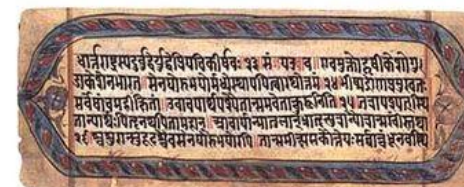 धार्तराष्ट्रस्य दुर्बुद्धेर्युद्धे प्रियचिकीर्षवः २३ एवमुक्तो हृषीकेशो गु
डाकेशेन भारत सेनयोरुभयोर्मध्ये स्थापयित्वा रथोत्तमं २४ भीष्मद्रोणप्रमुखतः
सर्वेषां च महीक्षितां उवाच पार्थ पश्यैतान्समवेतान्कुरूनिति २५ तत्रापश्यत्स्थि
तान्पार्थः पितॄनथ पितामहान् आचार्यान्मातुलान्भ्रातॄन्पुत्रान्पौत्रान्सखींस्तथा
२६ श्वशुरान्सुहृदश्चैव सेनयोरुभयोरपि तान्समीक्ष्य स कौंतेयः सर्वान्बंधूनवस्थि